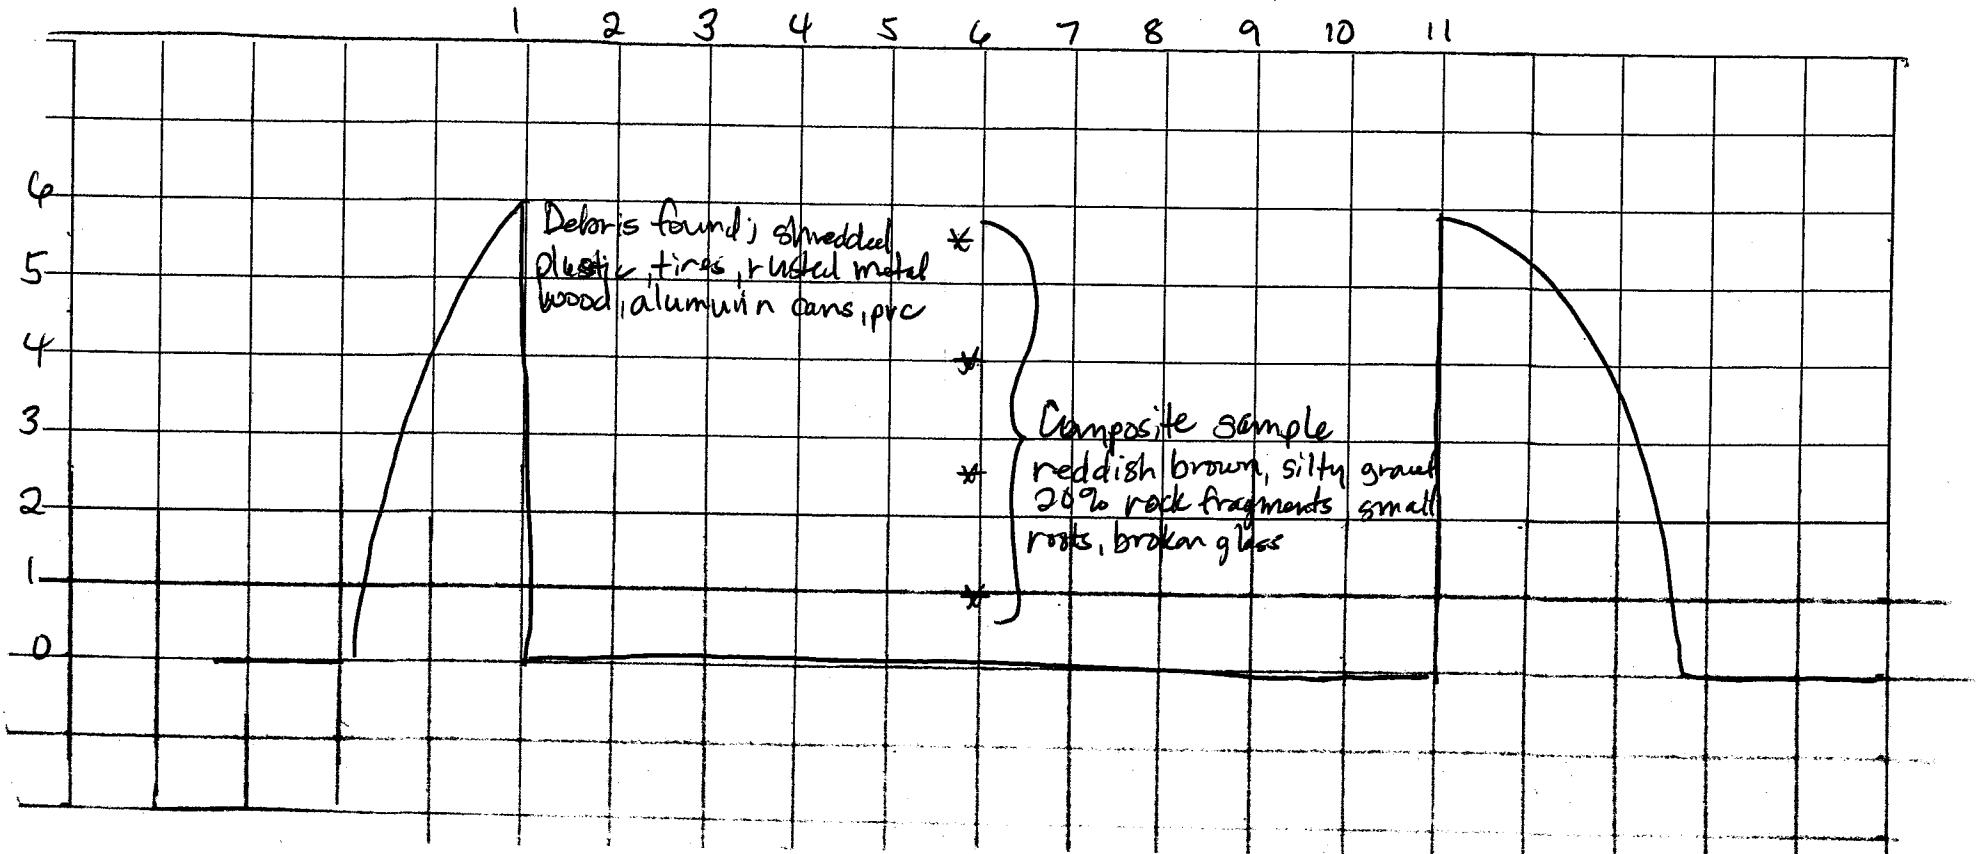 1 2 3 4 5 6 7 8 9 10 11
6
5
4
3
2
1
0
Debris found; shredded
plastic, tires, rusted metal
wood, alumuin cans, pvc
Composite sample
reddish brown, silty gravel
20% rock fragments small
roots, broken glass